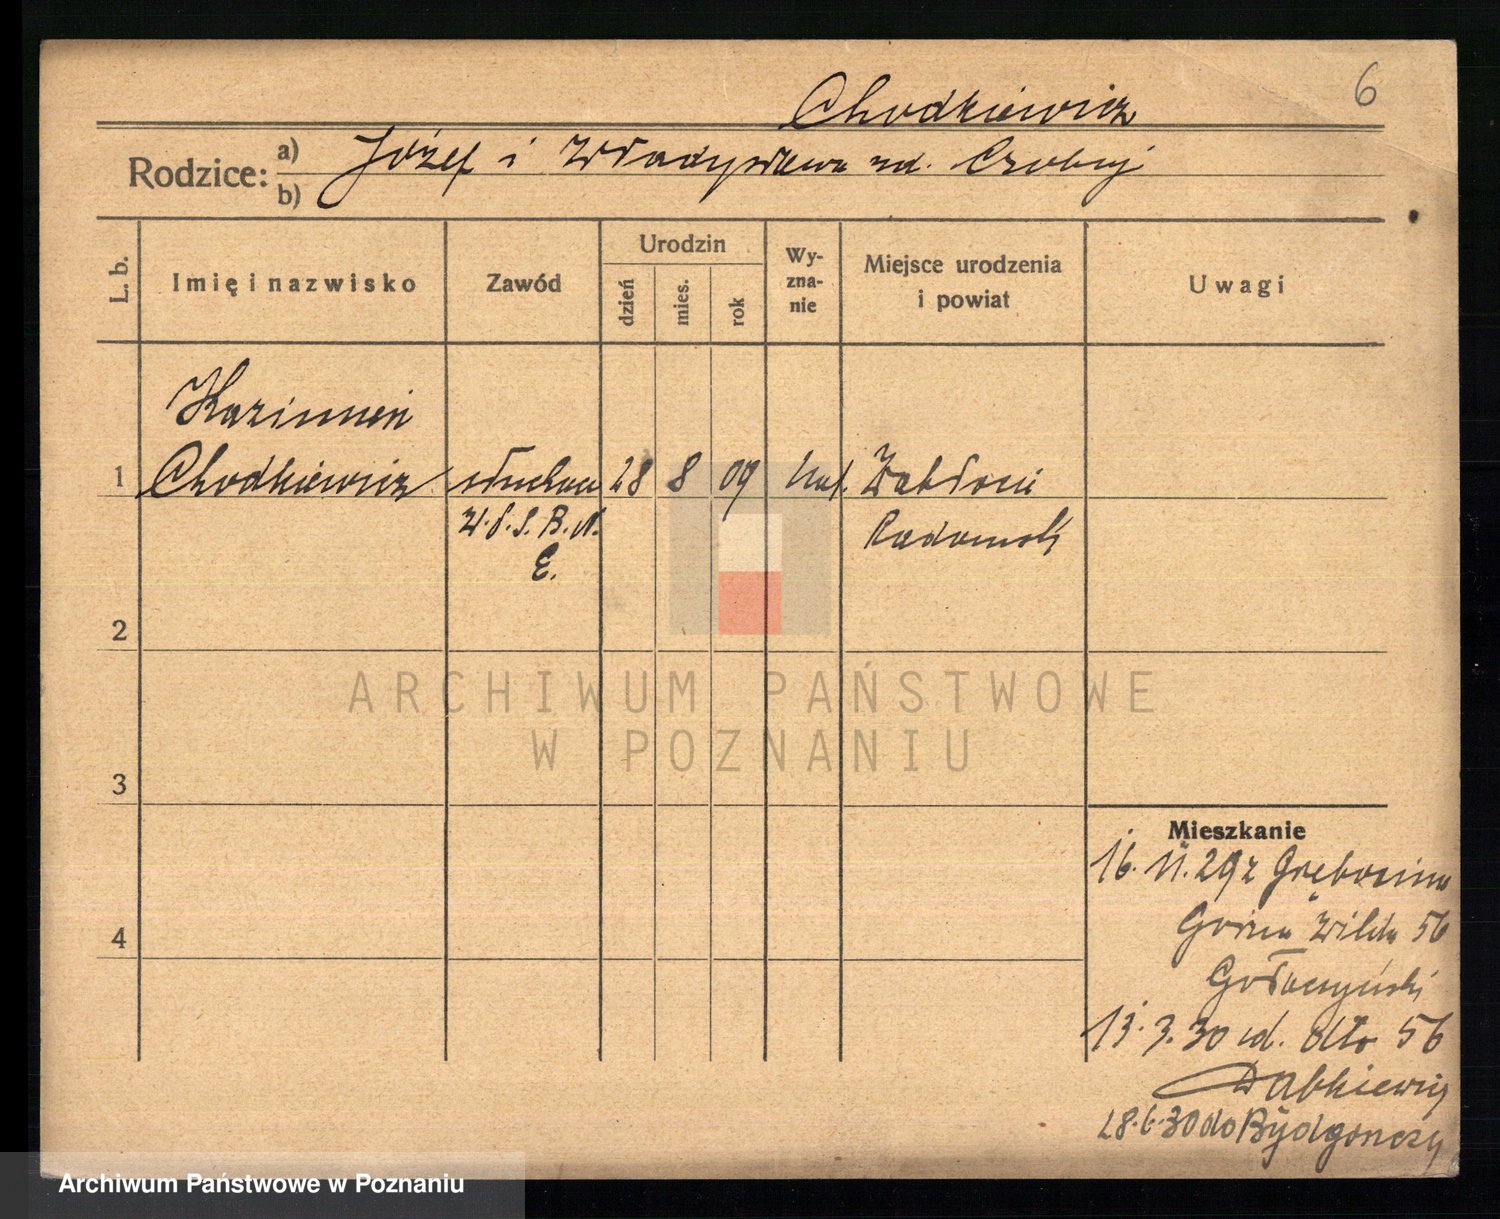 6
Chodkiewicz
Rodzice: a) Józef i Władysława zd. Czobuj
b)
L. b.
Imię i nazwisko
Zawód
Urodzin
dzień
mies.
rok
Wy-
zna-
nie
Miejsce urodzenia
i powiat
Uwagi
Kazimierz
1 Chodkiewicz słuchacz 28 8 09 kat.
Radomsk
2
3
4
Mieszkanie
16. 11. 29 z
Górna Wilda 56
Gołaczyński
13. 3. 30 dto 56
Dabkiewicz
28.6.30 do Bydgoszczy
ARCHIWUM PAŃSTWOWE
W POZNANIU
Archiwum Państwowe w Poznaniu